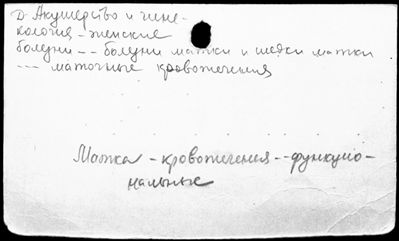 Д Акушерство и гине-
кология - женские
болезни -- болезни матки и шейки матки
--- маточные кровотечения
Матка - кровотечения -- функцио-
нальные